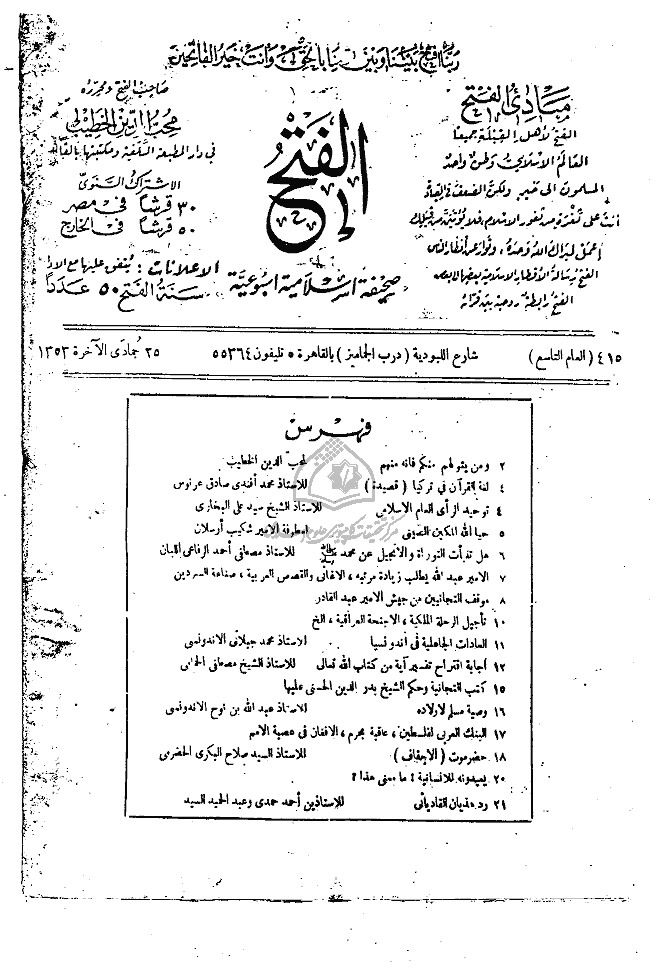 ربنا افتح بيننا وبين قومنا بالحق وأنت خير الفاتحين
مبادئ الفتح
الفتح لأهل القبلة جميعا
العالم الاسلامي وطن واحد
المسلمون الى خير ولكن الضعف في القيادة
أنت على ثغرة من ثغور الاسلام فلا يؤتين من قبلك
اعمل ليراك الله وحده، وتوار عن أنظار الناس
الفتح رسالة الأقطار الاسلامية بعضها الى بعض
الفتح رابطة روحية بين قرائه
الفتح
صحيفة اسلامية اسبوعية
صاحب الفتح ومحرره
محب الدين الخطيب
في دار المطبعة السلفية ومكتبتها بالقاهرة
الاشتراك السنوي
٣٠ قرشا في مصر
٥٠ قرشا في الخارج
الاعلانات : يتفق عليها مع الادارة
سنة الفتح ٥٠ عددا
٤١٥ ( العام التاسع ) شارع اللبودية ( درب الجاميز ) بالقاهرة ، تليفون ٥٥٣٦٤ ٢٥ جمادى الآخرة ١٣٥٣
فهرس
٢ ومن يتولهم منكم فانه منهم لمحب الدين الخطيب
٤ لغة القرآن في تركيا ( قصيدة ) للاستاذ محمد أفندي صادق عرنوس
٤ توحيد الرأي العام الاسلامي للاستاذ الشيخ سيد علي البخاري
٥ حيا الله المكين الحسيني لعطوفة الامير شكيب أرسلان
٦ هل تنبأت التوراة والانجيل عن محمد ﷺ للاستاذ مصطفى أحمد الرفاعي اللبان
٧ الامير عبد الله يطلب زيادة مرتبه ، الاغاني والقصص العربية ، صناعة السردين
٨ موقف التجانيين من جيش الامير عبد القادر
١٠ تأجيل الرحلة الملكية ، الاجنحة العراقية ، الخ
١١ العادات الجاهلية في أندونسيا للاستاذ محمد جيلاني الاندونسي
١٢ اجابة اقتراح تفسير آية من كتاب الله تعالى للاستاذ الشيخ مصطفى الحمامي
١٥ كتب التجانية وحكم الشيخ بدر الدين الحسني عليها
١٦ وصية مسلم لاولاده للاستاذ عبد الله بن نوح الاندونسي
١٧ البنك العربي لفلسطين ، عاقبة مجرم ، الافغان في عصبة الامم
١٨ حضرموت ( الاحقاف ) للاستاذ السيد صلاح البكري الحضرمي
٢٠ يعيدونه للانسانية ! ما معنى هذا ؟
٢١ رد هذيان القادياني للاستاذين أحمد حمدي وعبد الحميد السيد